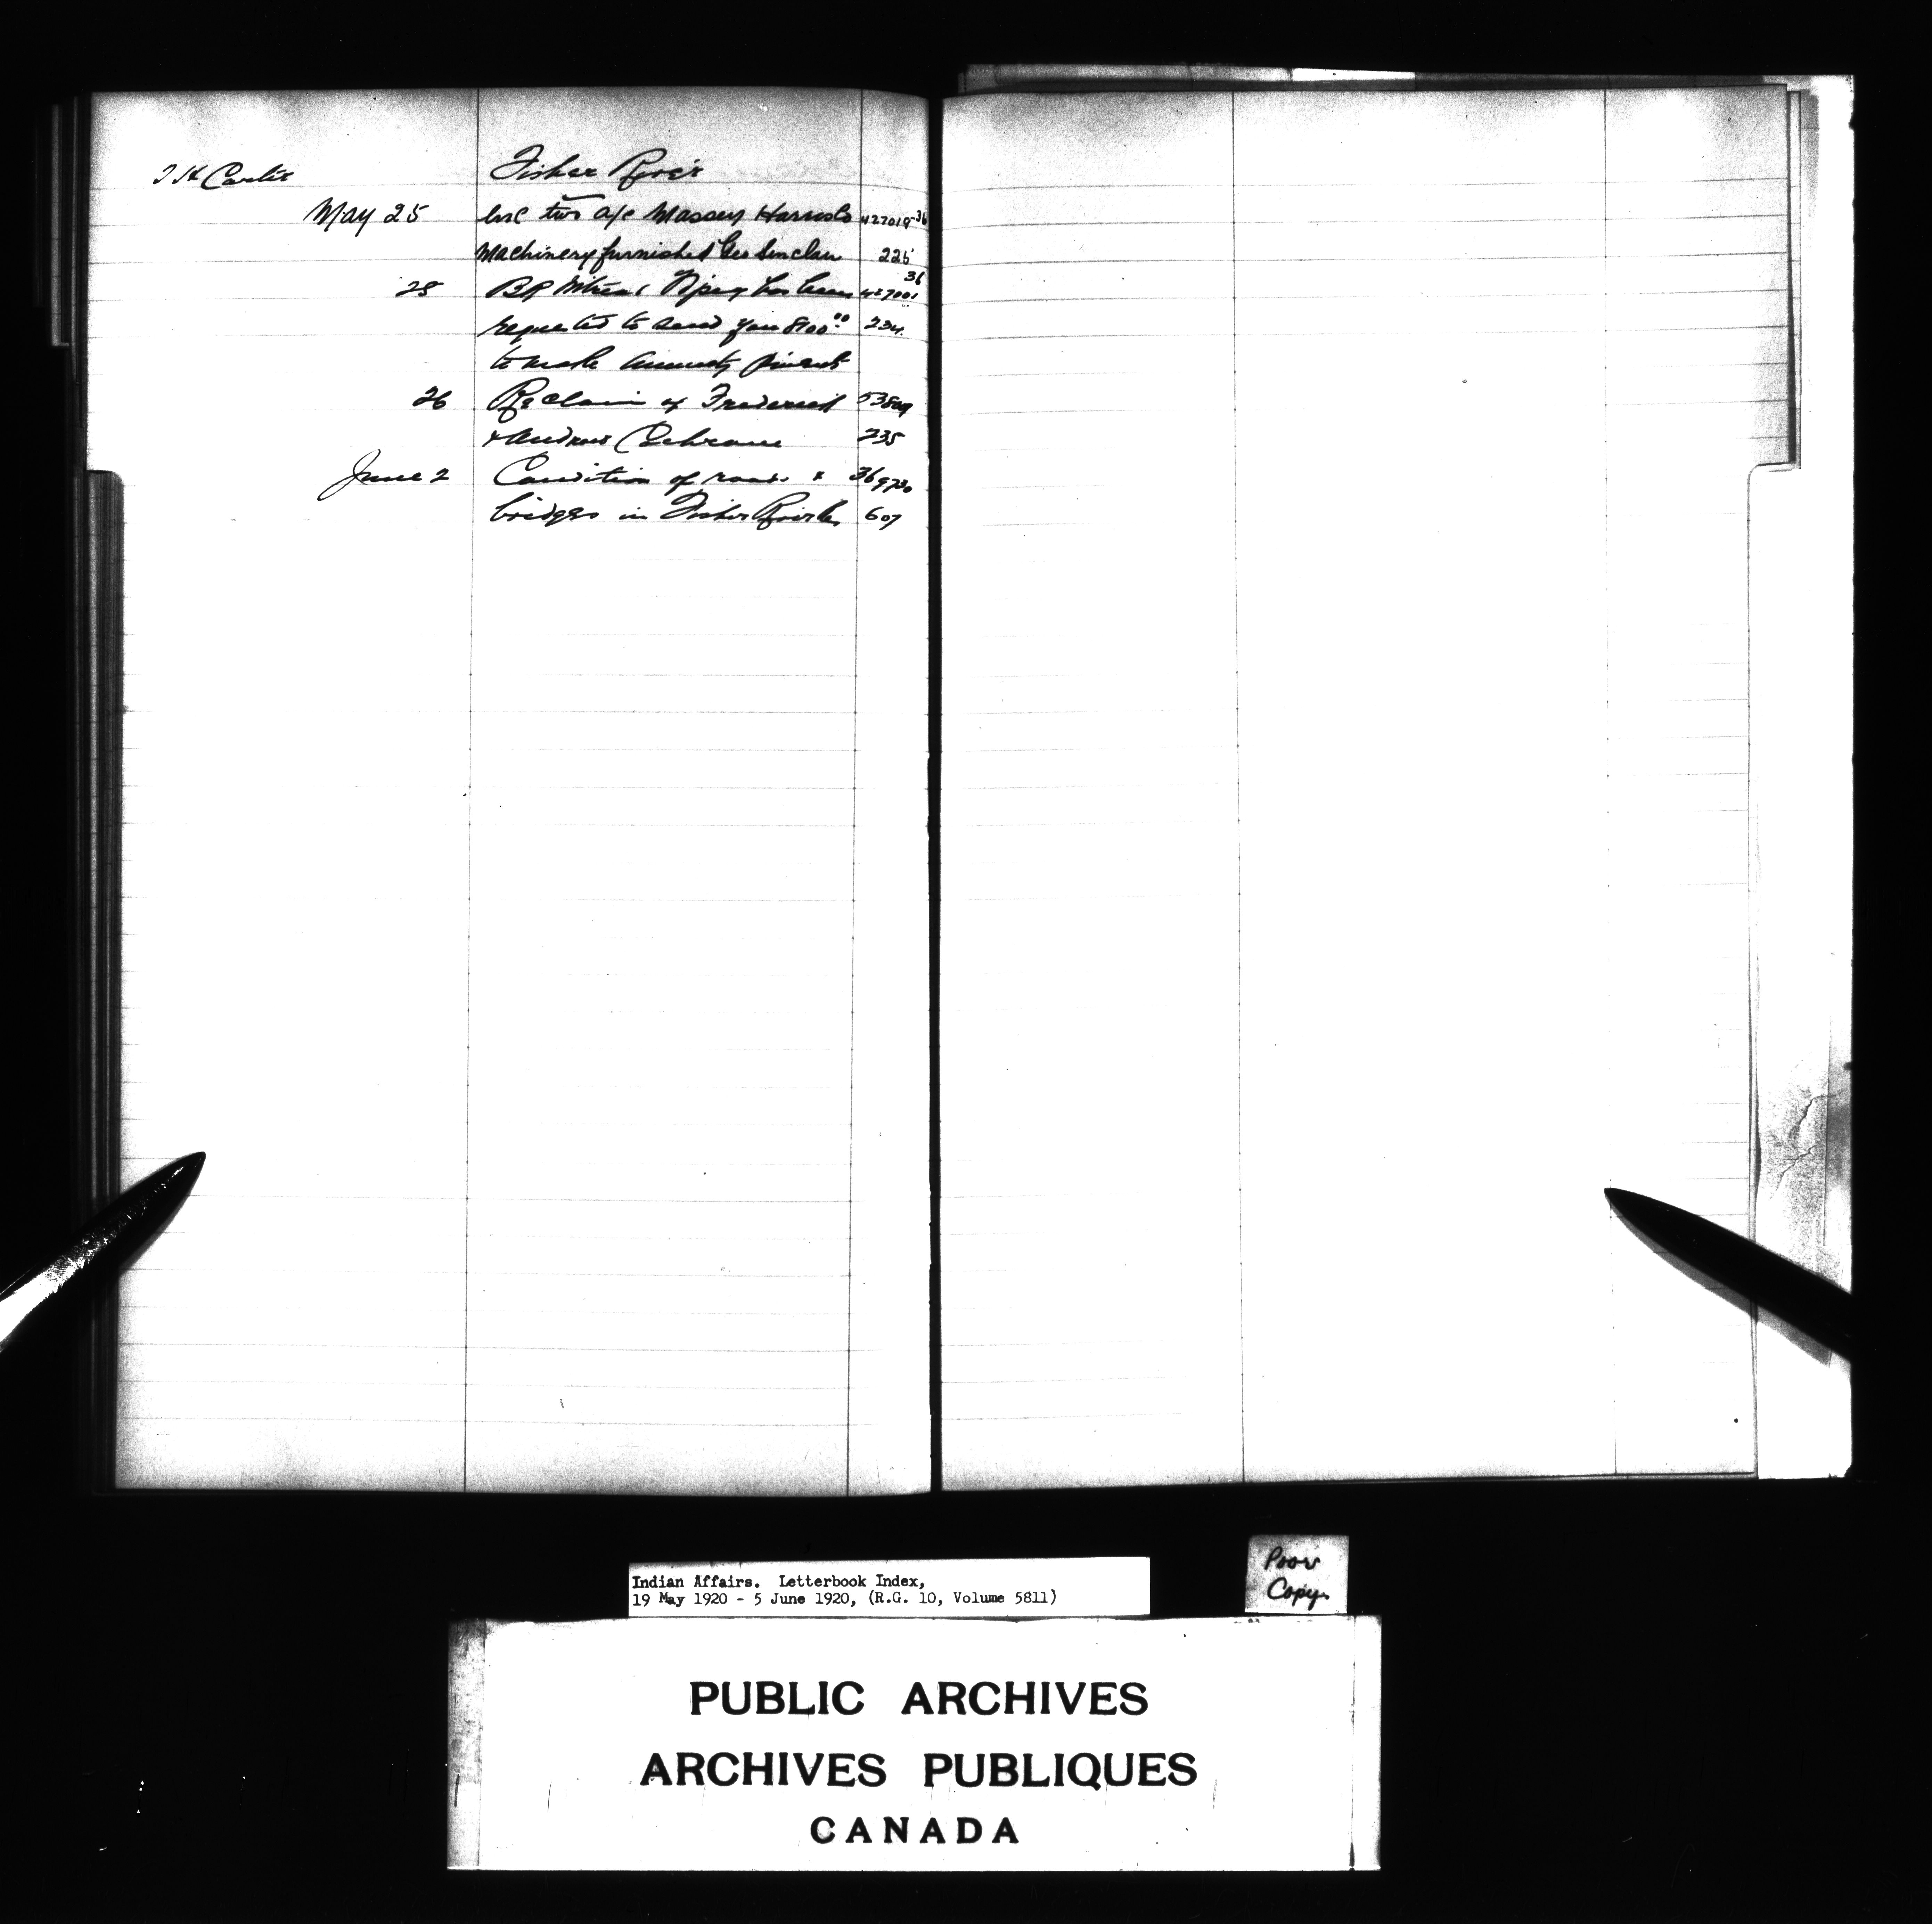 T H Carter Fisher River
May 25 Enc two a/c Massey Harris Co 427019-36
Machinery furnished Geo Sinclair 225
25 Wpeg has been 427001 36
requested to send you 8100.00 234
to make annuity
26 Re claim of Frederick 53809
& Andrew Cochrane 235
June 2 Condition of roads & 369730
bridges in Fisher River 607
Indian Affairs. Letterbook Index,
19 May 1920 - 5 June 1920, (R.G. 10, Volume 5811)
Poor
Copy.
PUBLIC ARCHIVES
ARCHIVES PUBLIQUES
CANADA